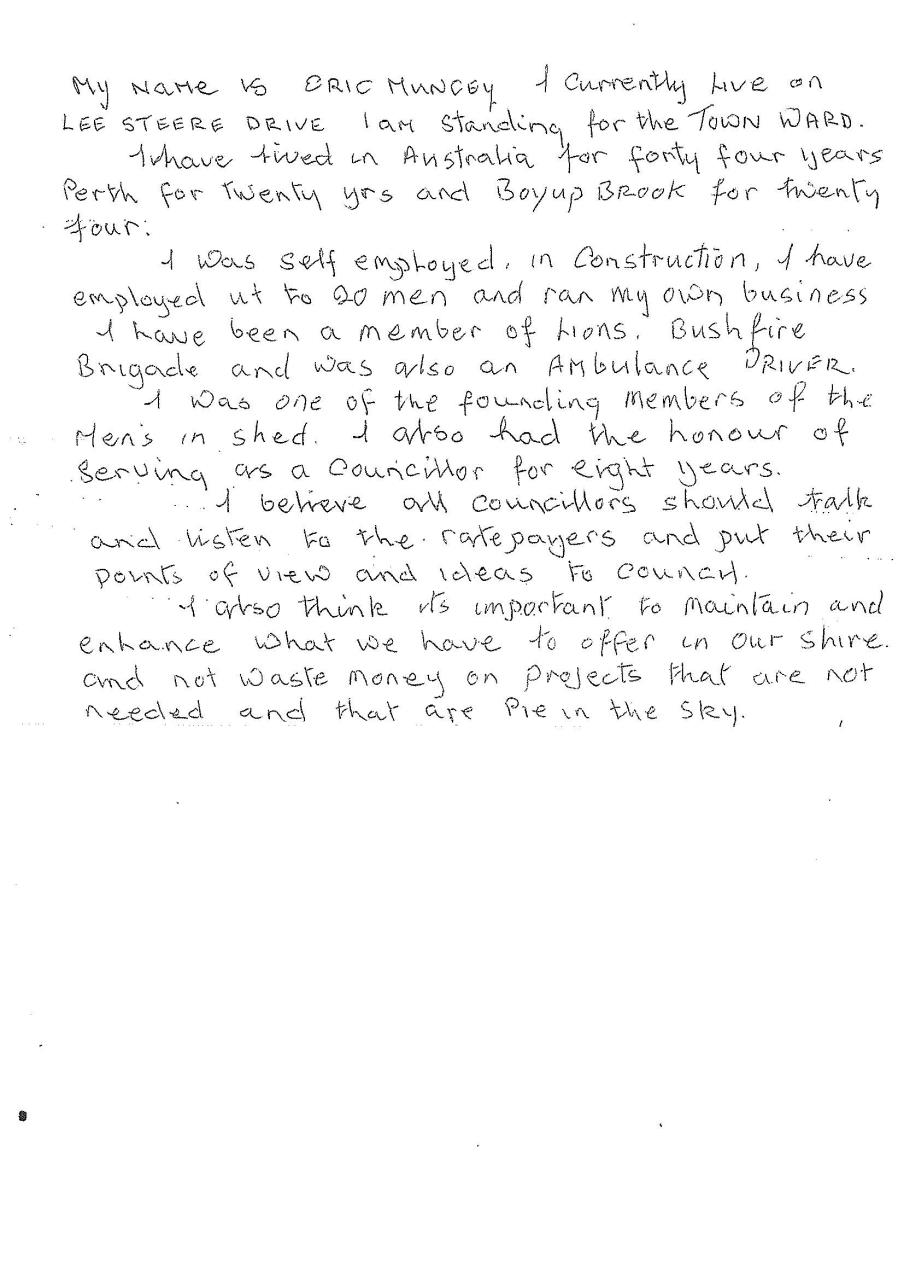 My NAME IS ERIC MUNCEY I Currently Live on
LEE STEERE DRIVE I am standing for the TOWN WARD.
I have lived in Australia for forty four years
Perth for twenty yrs and Boyup BROOK for twenty
four.
I was self employed. in Construction, I have
employed ut to 20 men and ran my own business
I have been a member of Lions. Bushfire
Brigade and was also an Ambulance DRIVER.
I was one of the founding members of the
Men's in shed. I also had the honour of
serving as a Councillor for eight years.
I believe all councillors should talk
and listen to the ratepayers and put their
points of view and ideas to council.
I also think its important to maintain and
enhance what we have to offer in our shire.
and not waste money on projects that are not
needed and that are Pie in the sky.